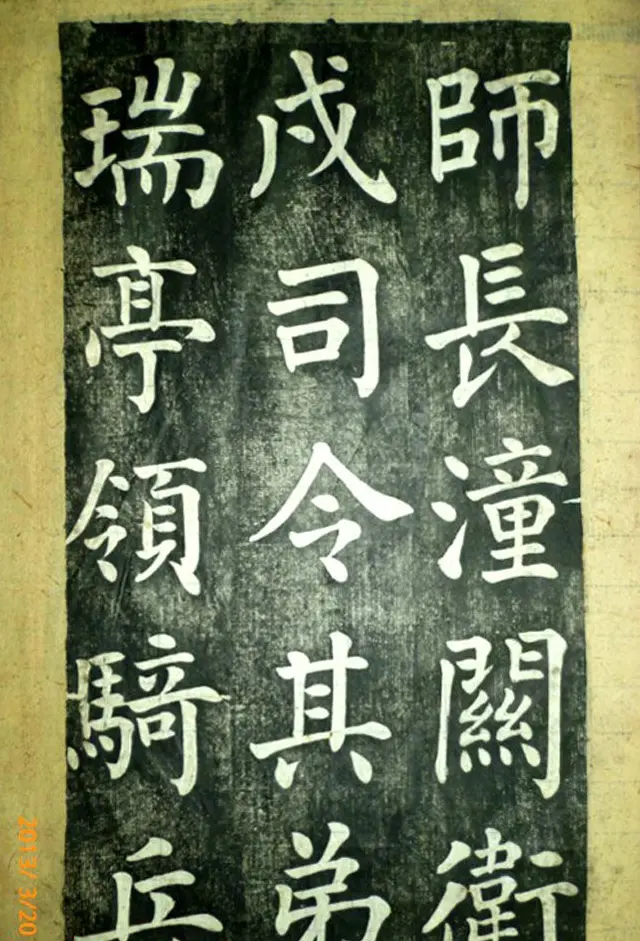 師長潼關衛
戍司令其弟
瑞亭領騎兵
2013/3/20